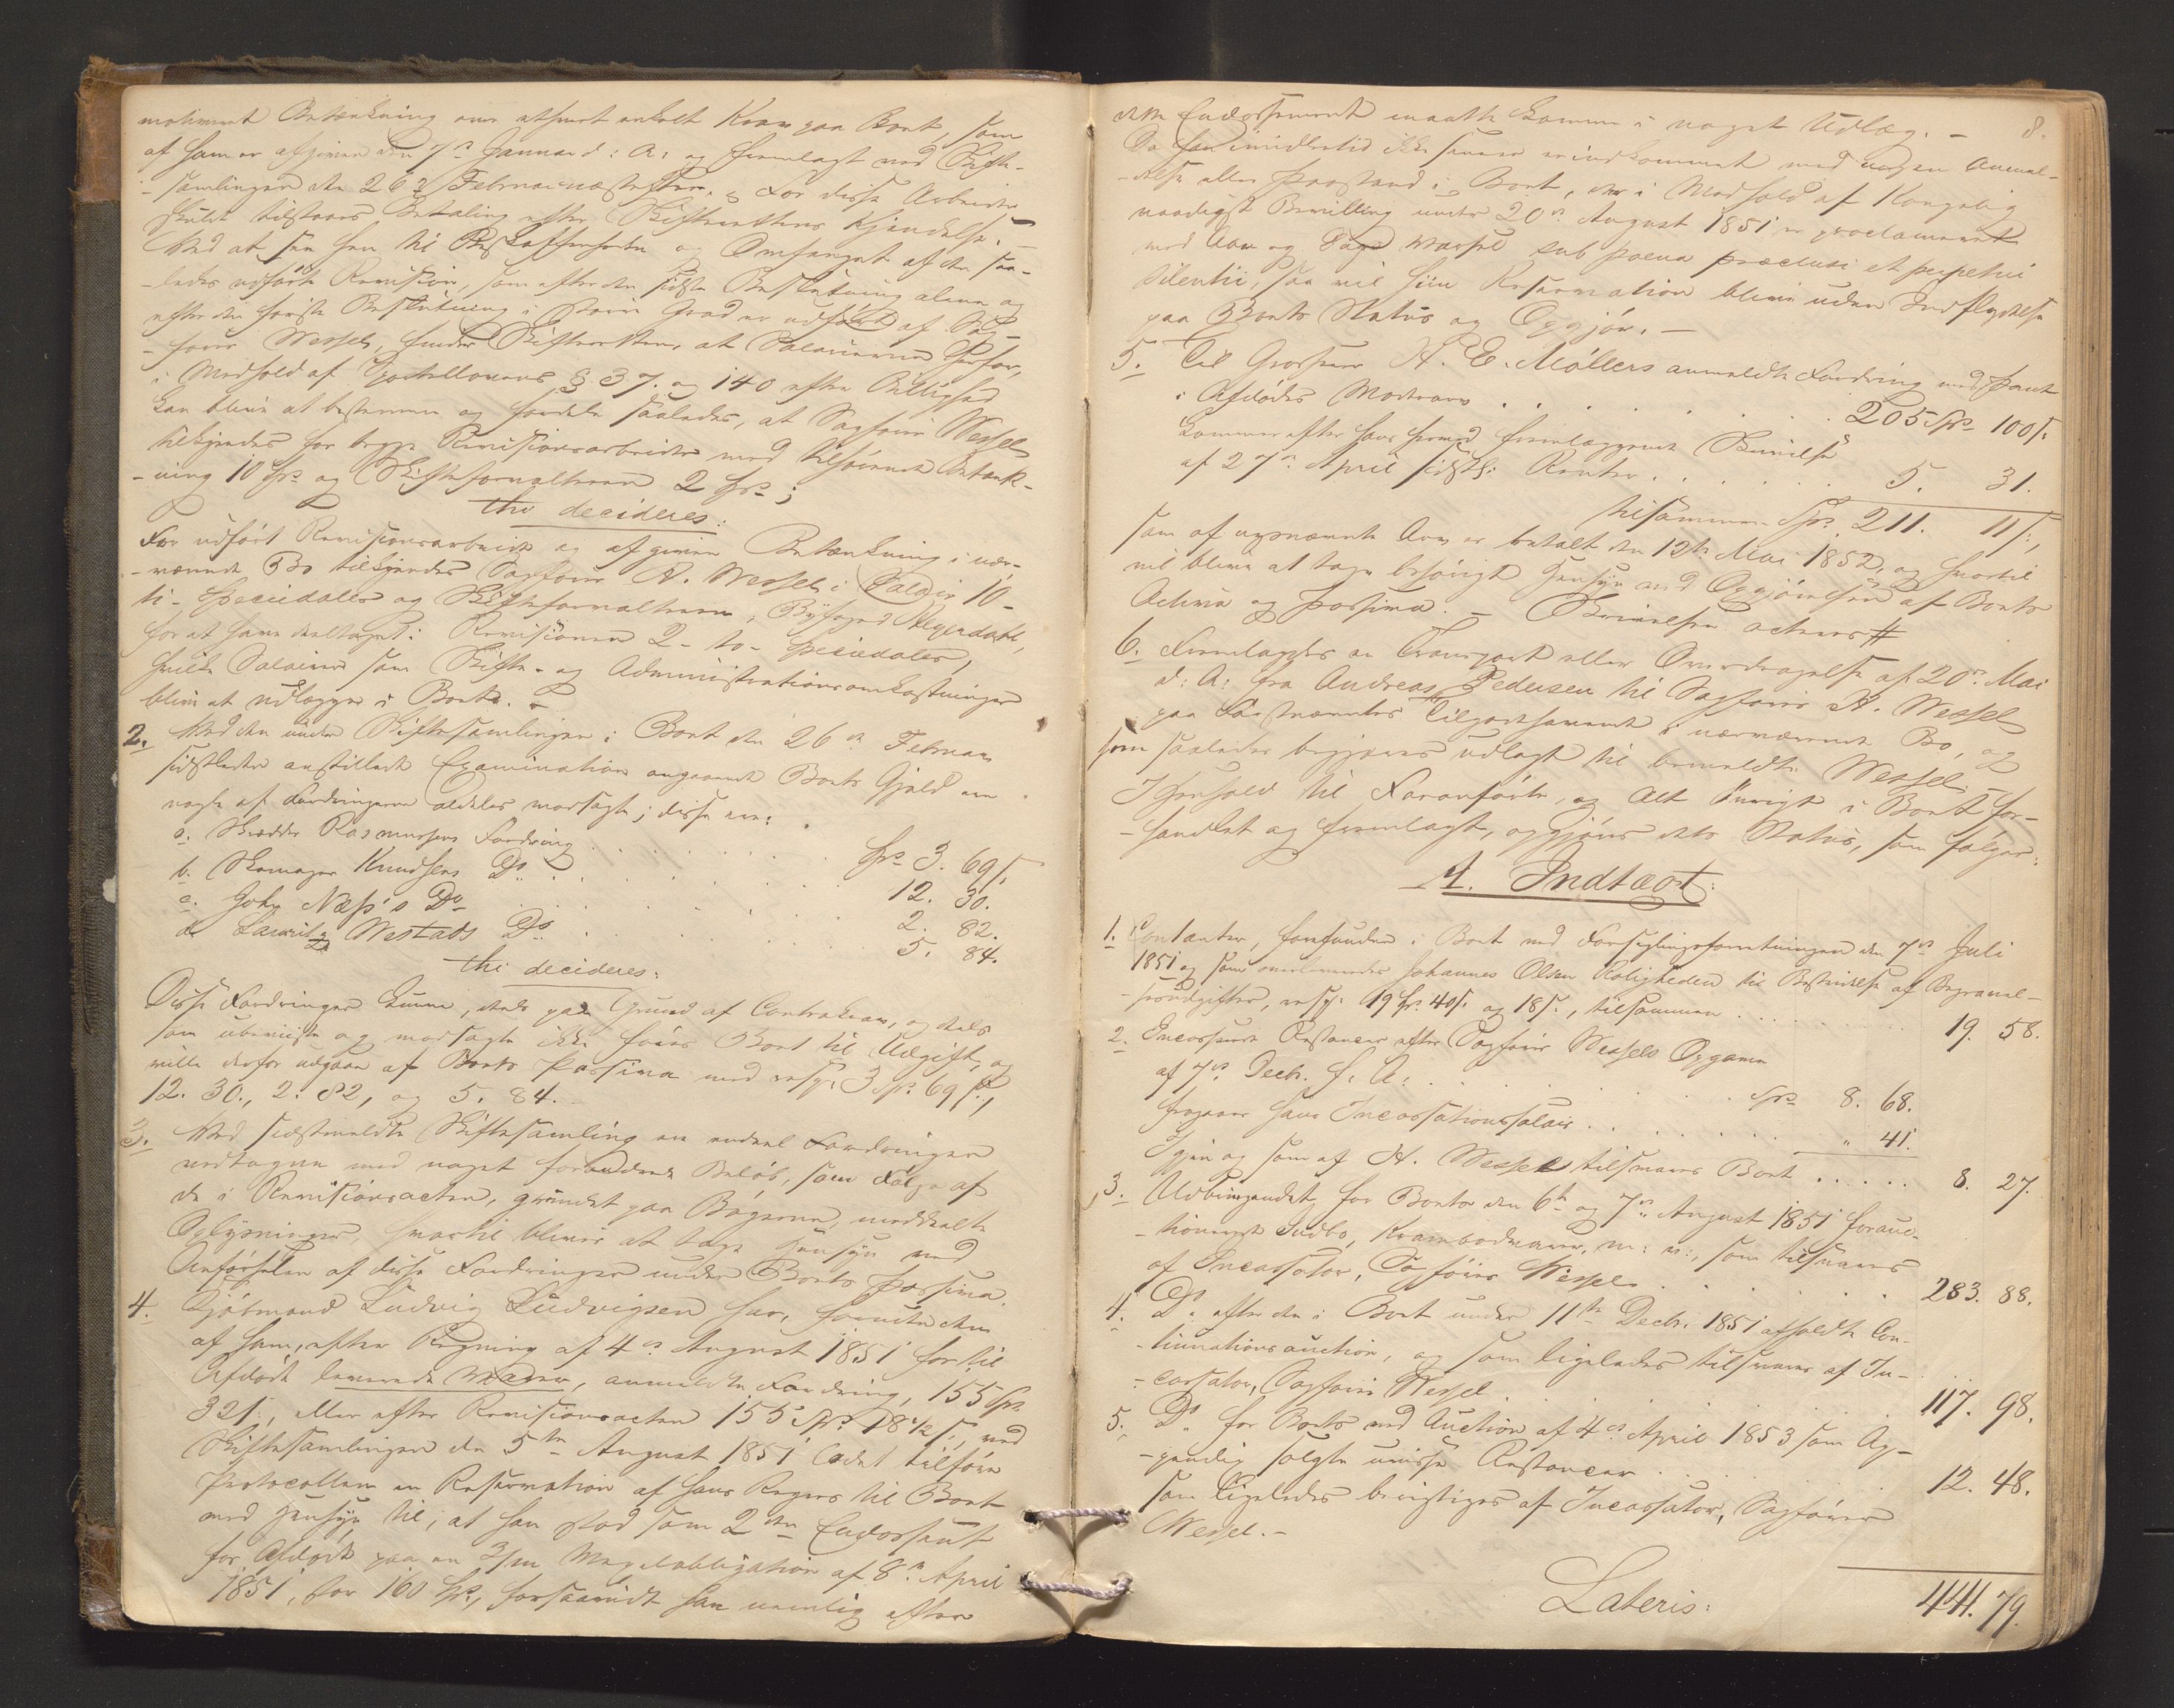 motiveret Betænkning over ethvert enkelt Krav paa Boet, som
af ham er afgiven den 7de Januar d: A: og fremlagt ved Skifte-
-samlingen den 26de Februar næstefter. For disse Arbeider
skulde tilstaaes Betaling efter Skifterettens Kjendelse. -
Ved at see hen til Beskaffenheden og Omfanget af den saa-
-ledes udførte Revision, som efter den sidste Beslutning alene og
efter den første Beslutning i større Grad er udført af Sag-
-fører Wessel, finder Skifteretten, at Salairerne herfor,
i Medhold af Sportellovens § 37. og 140 efter Billighed
kan blive at bestemme og fordele saaledes, at Sagfører Wessel
tilkjendes for begge Revisionsarbeider med tilhørende Betænk-
-ning 10 Spd og Skifteforvalteren 2 Spd;
thi decideres:
For udført Revisionsarbeide og afgiven Betænkning i nær-
-værende Bo tilkjendes Sagfører A. Wessel i Salair 10 -
ti - Speciedaler og Skifteforvalteren, Byfoged
for at have deeltaget i Revisionen 2 - to - Speciedaler,
hvilke Salairer som Skifte- og Administrationsomkostninger
blive at udlægge i Boet. -
2. Ved den under Skiftesamlingen i Boet den 26de Februar
sidstleden anstillede Examination angaaende Boets Gjeld ere
nogle af Fordringerne aldeles modsagte; disse ere:
a. Skrædder Rasmussens Fordring . . . . . . Spd 3. 69 s.
b. Skomager Knudsens Do . . . . . . 12. 30.
c. John Næss's Do . . . . . . 2. 82.
d. Lauritz Westads Do . . . . . . 5. 84.
thi decideres:
Disse Fordringer kunne, deels paa Grund af Contrakrav, og deels
som ubeviiste og modsagte ikke føres Boet til Udgift, og
ville derfor udgaae af Boets Passiva med resp: 3 Spd 69 s.,
12. 30., 2. 82, og 5. 84. -
3. Ved sidstmeldte Skiftesamling ere endeel Fordringer
vedtagne med noget forandrede Beløb, som Følge af
de i Revisionsacten, grundet paa Bøgerne, meddeelte
Oplysninger, hvortil bliver at tage Hensyn ved
Anførselen af disse Fordringer under Boets Passiva.
4. Kjøbmand Ludvig Ludvigsen har, foruden den
af ham, efter Regning af 4de August 1851 for til
Afdøde leverede Varer, anmeldte Fordring, 155 Spd
32 s., eller efter Revisionsacten 155 Spd 18 1/2 s., ved
Skiftesamlingen den 5te August 1851 ladet tilføre
Protocollen en Reservation af hans Regres til Boet
med Hensyn til, at han stod som 2den Endossent
for Afdøde paa en 3/m Vexelobligation af 8de April
1851, stor 160 Spd, forsaavidt han nemlig efter
8.
dette Endossement maatte komme i noget Udlæg. -
Da han imidlertid ikke senere er indkommet med nogen Anmel-
-delse eller Paastand i Boet, der i Medhold af Kongelig
naadigst Bevilling under 20de August 1851 er proclameret
med Aar og Dags Varsel sub poena præclusi et perpetui
silentii, saa vil hiin Reservation blive uden Indflydelse
paa Boets Status og Opgjør. -
5. Til Grosserer H. E. Møllers anmeldte Fordring med Pant
i Afdødes Vare . . . . . . 205 Spd 100 s.
kommer efter hans herved fremlæggende Skrivelse
af 27de April sidstl: Renter . . . . . . 5. 31.
tilsammen Spd 211. 11 s.,
som af er betalt den 12te Mai 1852, og hvortil
vil blive at tage behørigt Hensyn ved Opgjørelsen af Boets
Activa og Passiva. - Skrivelsen acteres #
6. Fremlagdes en Transport eller Overdragelse af 20de Mai
d: A: fra Andreas Pedersen til Sagfører A. Wessel
paa Førstnævntes Tilgodehavende i nærværende Bo, og
som saaledes begjæres udlagt til bemeldte Wessel. -
I Henhold til Foranførte, og Alt Øvrigt i Boet for-
-handlet og fremlagt, opgjøres dets Status, som følger:
A. Indtægt:
1. Contanter, forefundne i Boet ved Forseglingsforretningen den 7de Juli
1851 og som overleveredes Johannes Olsen Roligheden til Bestridelse af Begravel-
-sesudgifter, resp: 19 Spd 40 s. og 18 s., tilsammen . . . . . . 19. 58.
2. Incasserede Restancer efter Sagfører Wessels Opgave
af 7de Decbr. f: A: . . . . . . Spd 8. 68.
fragaaer hans Incassationssalair . . . . . . " 41.
Igjen og som af A. Wessel tilsvares Boet . . . . . 8. 27.
3. Udbringendet for Boets den 6te og 7de August 1851 foranc-
-tionerede Indbo, Krambodvarer, m: v:, som tilsvares
af Incassator, Sagfører Wessel . . . . . . 283. 88.
4. Do. efter den i Boet under 11te Decbr. 1851 afholdte Con-
-tinuationsauction, og som ligeledes tilsvares af In-
-cassator, Sagfører Wessel . . . . . . 117. 98.
5. Do. for Boets ved Auction af 4de April 1853 som Op-
-gjendig solgte uvisse Restancer . . . . . . 12. 48.
som ligeledes berigtiges af Incassator, Sagfører
Wessel. -
Lateris: 441. 79.